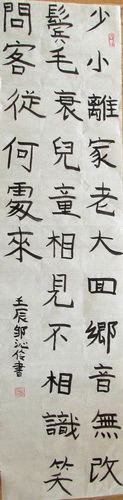 少小離家老大回鄉音無改
鬢毛衰兒童相見不相識笑
問客從何處來
壬辰鄒沁書